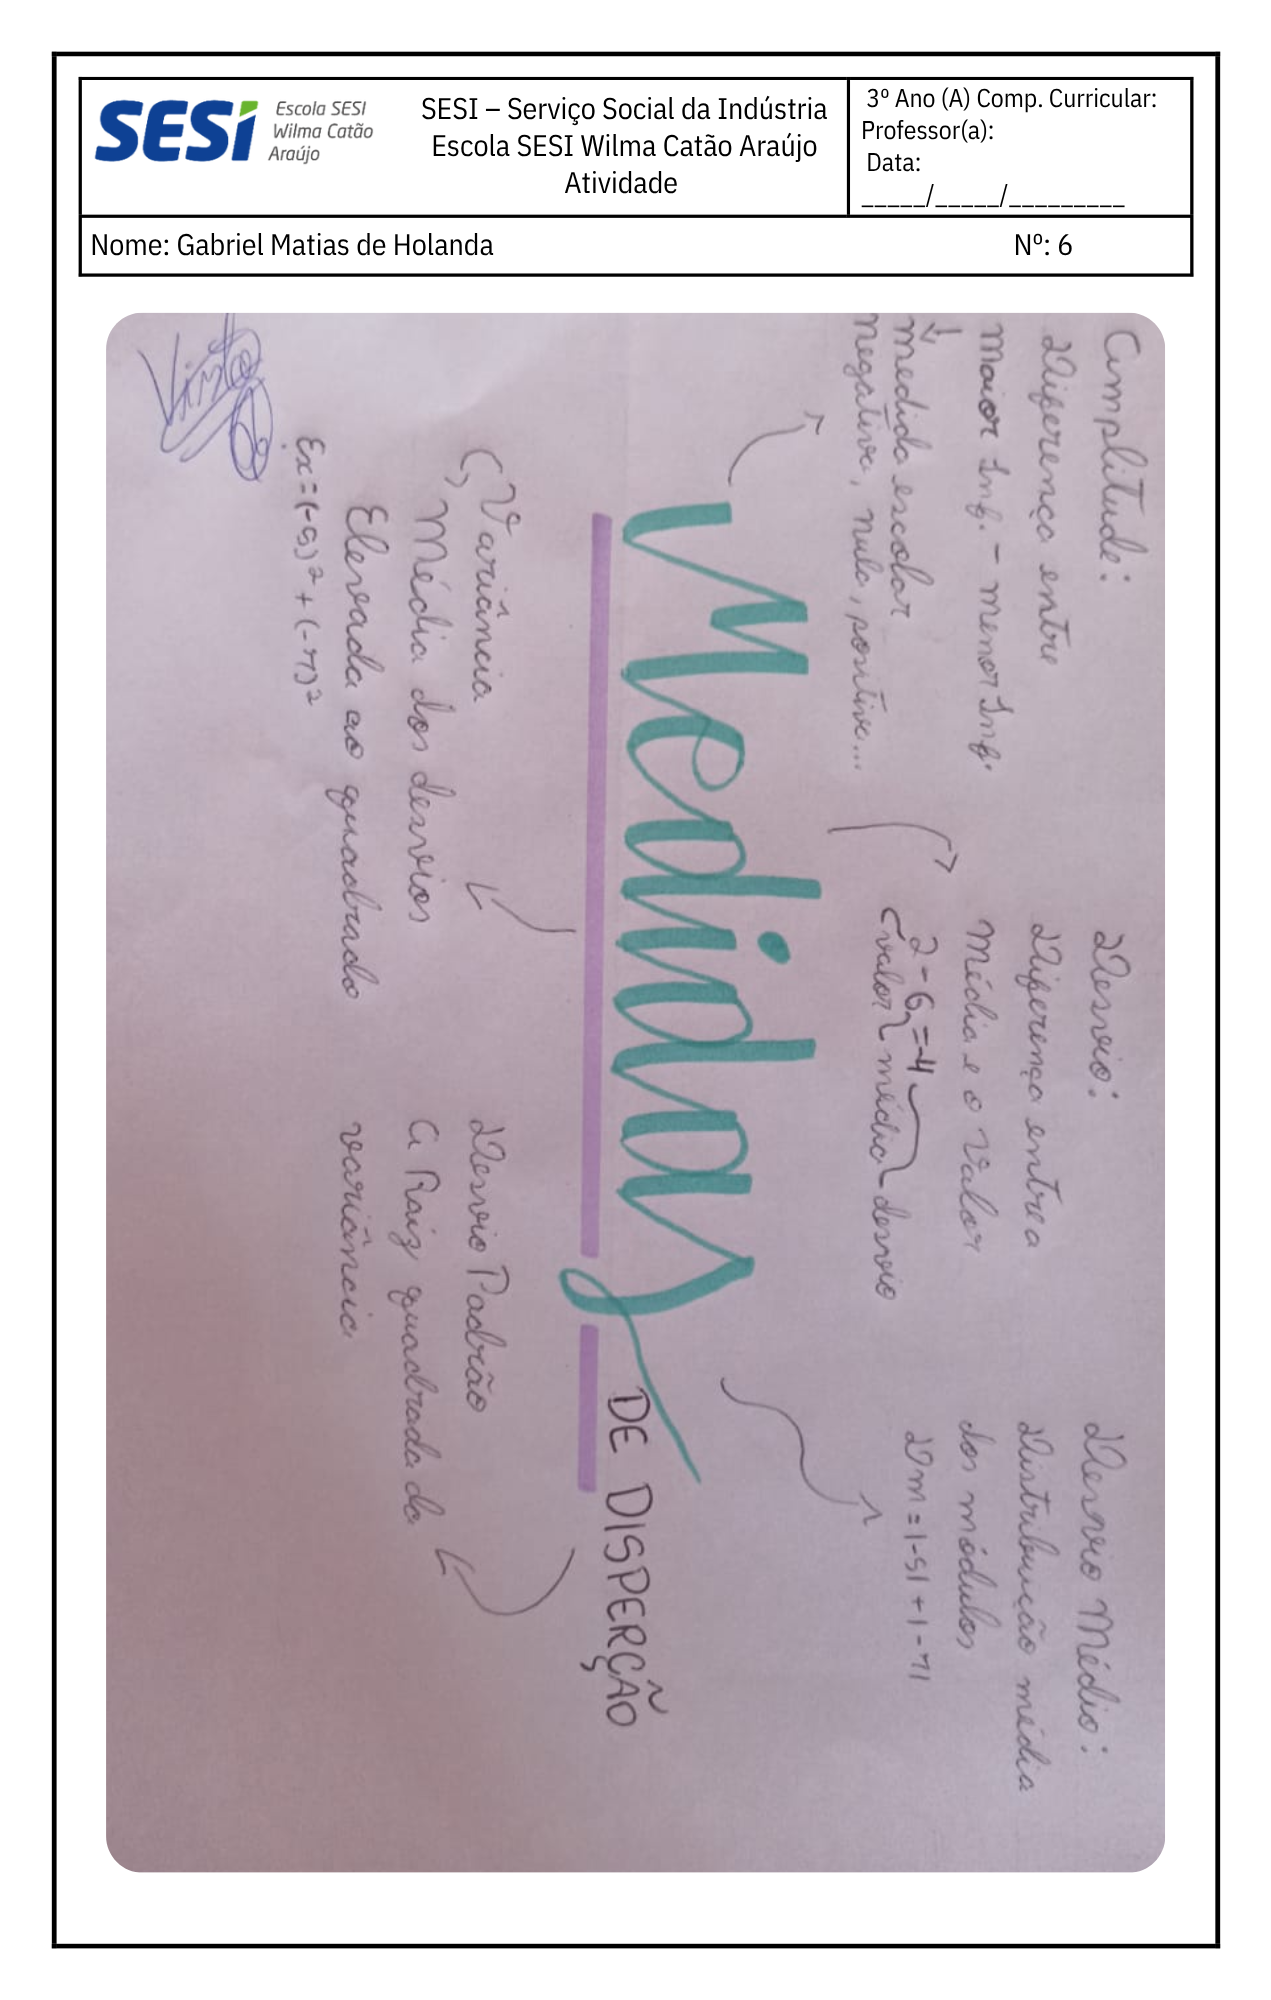 SESI
Escola SESI
Wilma Catão
Araújo
SESI – Serviço Social da Indústria
Escola SESI Wilma Catão Araújo
Atividade
3º Ano (A) Comp. Curricular:
Professor(a):
Data:
_____/_____/_________
Nome: Gabriel Matias de Holanda Nº: 6
Amplitude:
Diferença entre
maior Inf. - menor Inf.
medida escolar
negativa, nula, positiva...
Desvio:
Diferença entre a
Média e o valor
2 - 6 = -4
valor média desvio
Desvio Médio:
Distribuição média
dos módulos
Dm = |-5| + |-7|
Medidas
DE DISPERÇÃO
Variância
Média dos desvios
Elevada ao quadrado
Ex = (-5)² + (-7)²
Desvio Padrão
A Raiz quadrada da
variância